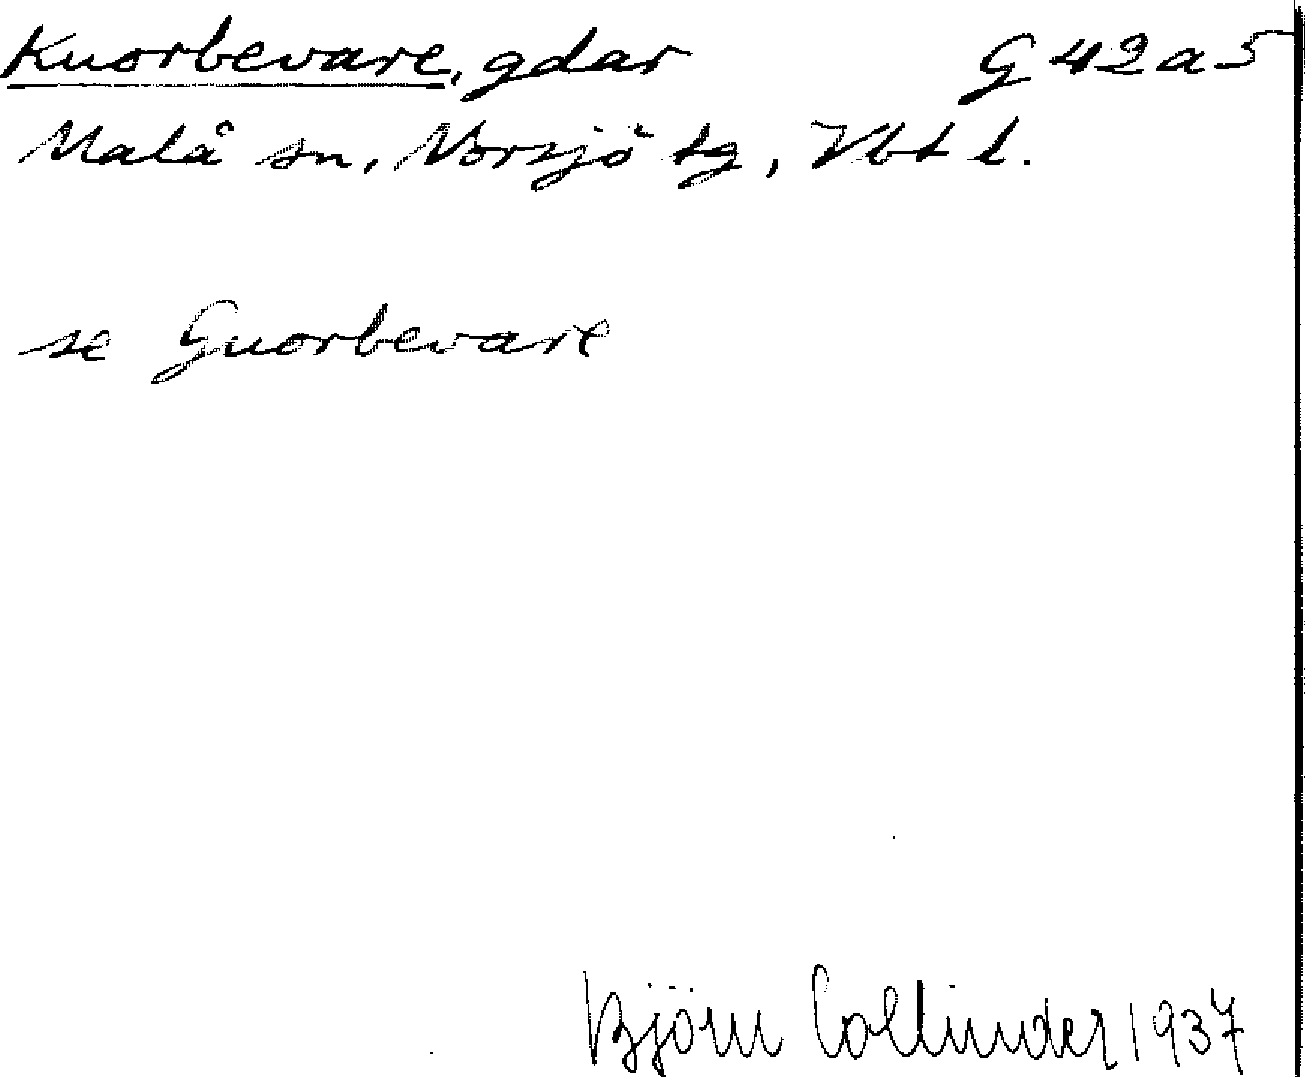 Knorbevare, gdar G 42 a 5
Malå sn, Norsjö tg, Vbt l.
se Gnorbevare
Björn Collinder 1937